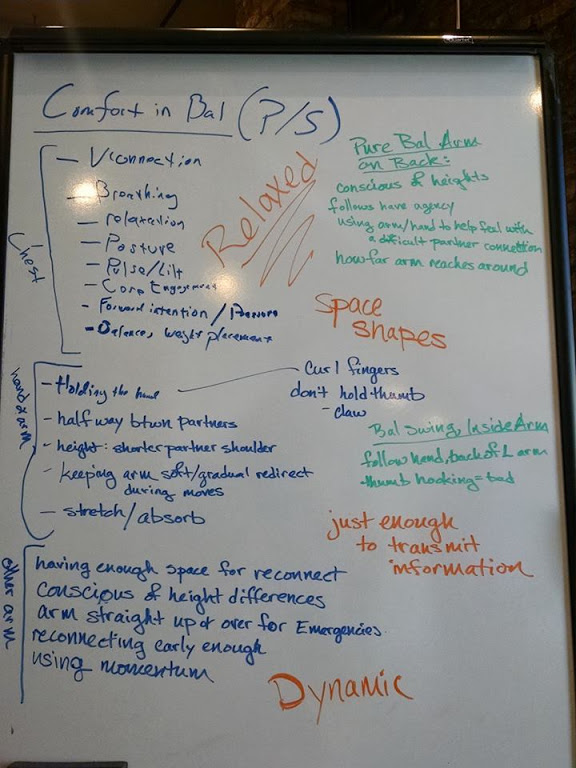 Comfort in Bal (P/S)
Chest
- V connection
- Breathing
- relaxation
- Posture
- Pulse/Lilt
- Core Engagement
- Forward intention/
- Balance, weight placement
Relaxed
Pure Bal Arm
on Back:
conscious of heights
follows have agency
using arm/hand to help feel with
a difficult partner connection
how far arm reaches around
Space
shapes
hand & arm
- Holding the hand
curl fingers
don't hold thumb
- claw
- half way btwn partners
- height: shorter partner shoulder
- keeping arm soft/gradual redirect
during moves
- stretch/absorb
Bal Swing, Inside Arm
follow hand, back of L arm
-thumb hooking = bad
just enough
to transmit
information
other arm
having enough space for reconnect
conscious of height differences
arm straight up or over for Emergencies
reconnecting early enough
using momentum
Dynamic